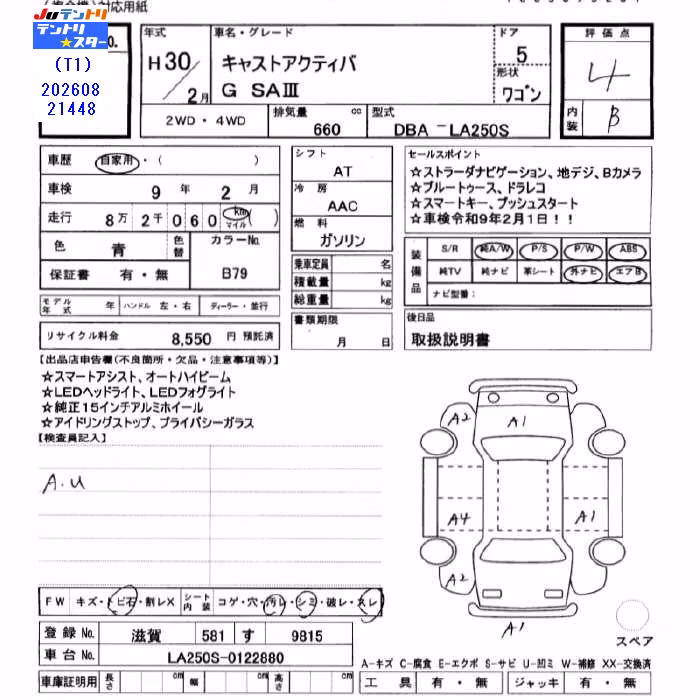 対応用紙
JUテントリ
テントリ★スター
(T1)
202608
21448
No.
年式
H30/2月
車名・グレード
キャストアクティバ
G SAⅢ
ドア
5
形状
ワゴン
評価点
4
内装
B
2WD・4WD
排気量
660
cc
型式
DBA -LA250S
車歴
自家用・( )
車検
9年2月
走行
8万2千060
km
マイル
( )
色
青
色替
カラーNo.
B79
保証書
有・無
モデル年式
年
ハンドル 左・右
ディーラー・並行
リサイクル料金
8,550 円 預託済
シフト
AT
冷房
AAC
燃料
ガソリン
乗車定員
名
積載量
kg
総重量
kg
書類期限
月 日
セールスポイント
☆ストラーダナビゲーション、地デジ、Bカメラ
☆ブルートゥース、ドラレコ
☆スマートキー、プッシュスタート
☆車検令和9年2月1日!!
装備品
S/R 純A/W P/S P/W ABS
純TV 純ナビ 革シート 外ナビ エアB
ナビ型番:
後日品
取扱説明書
【出品店申告欄(不良箇所・欠品・注意事項等)】
☆スマートアシスト、オートハイビーム
☆LEDヘッドライト、LEDフォグライト
☆純正15インチアルミホイール
☆アイドリングストップ、プライバシーガラス
【検査員記入】
A.U
A2
A1
A4
A1
A2
A1
スペア
FW
キズ・トビ石・割レX
シート内装
コゲ・穴・汚レ・シミ・破レ・スレ
登録No.
滋賀 581 す 9815
車台No.
LA250S-0122880
車庫証明用
長さ
cm
幅
cm
高さ
cm
A-キズ C-腐食 E-エクボ S-サビ U-凹ミ W-補修 XX-交換済
工具
有・無
ジャッキ
有・無